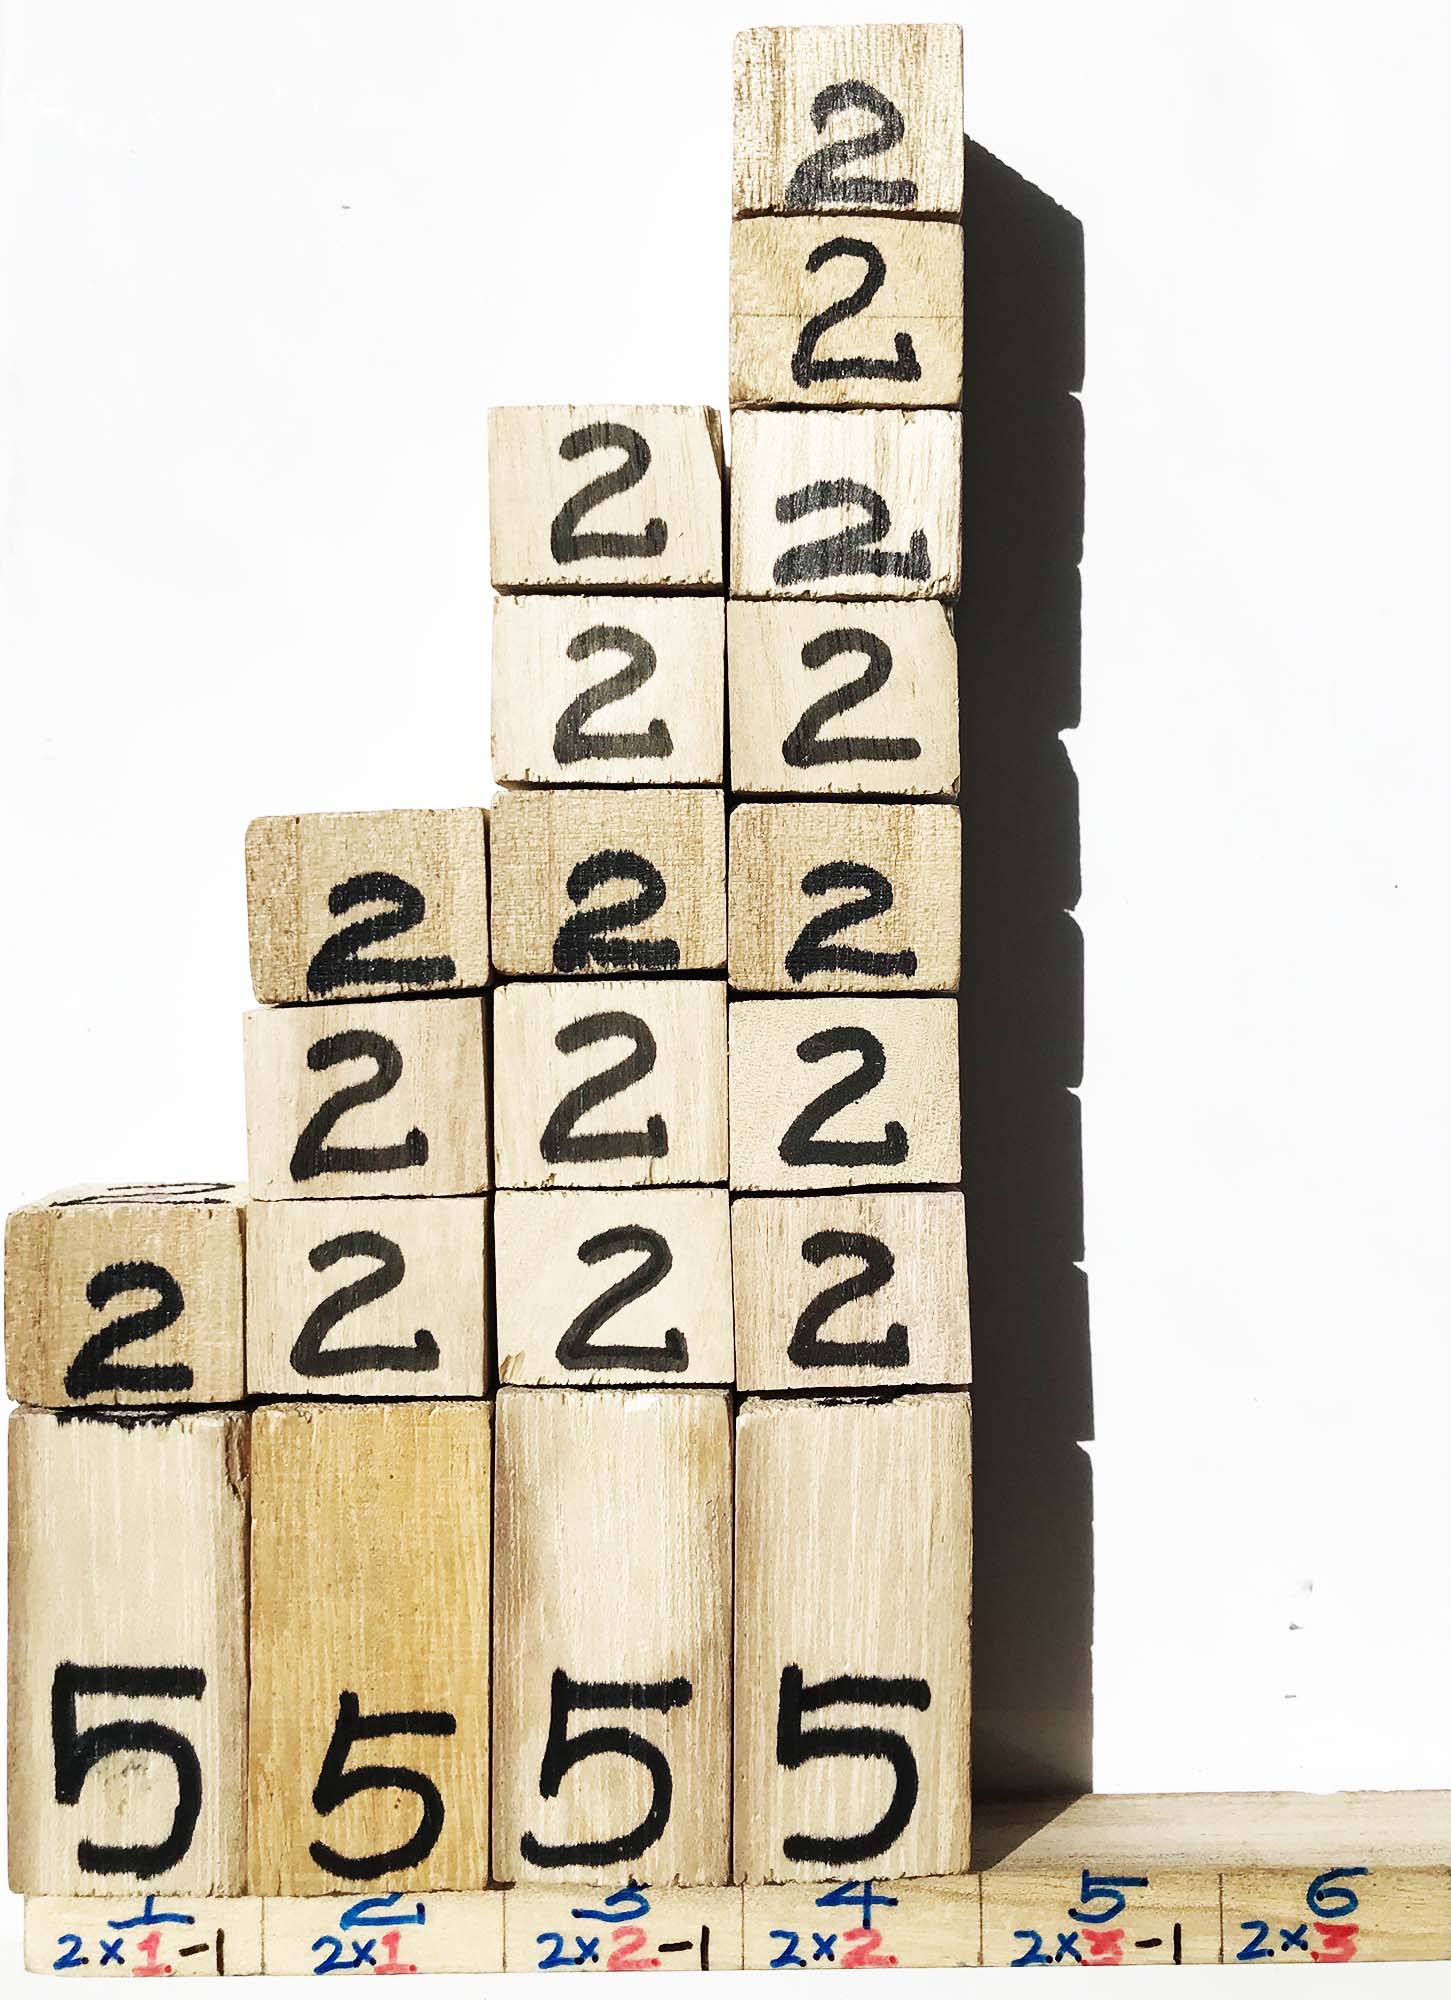 2
2
2 2
2 2
2 2 2
2 2 2
2 2 2 2
5 5 5 5
1 2 3 4 5 6
2x1-1 2x1 2x2-1 2x2 2x3-1 2x3